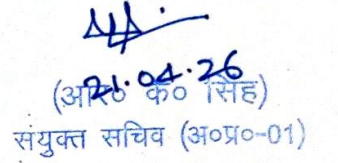 21.04.26
(आर० के० सिंह)
संयुक्त सचिव (अ०प्र०-01)